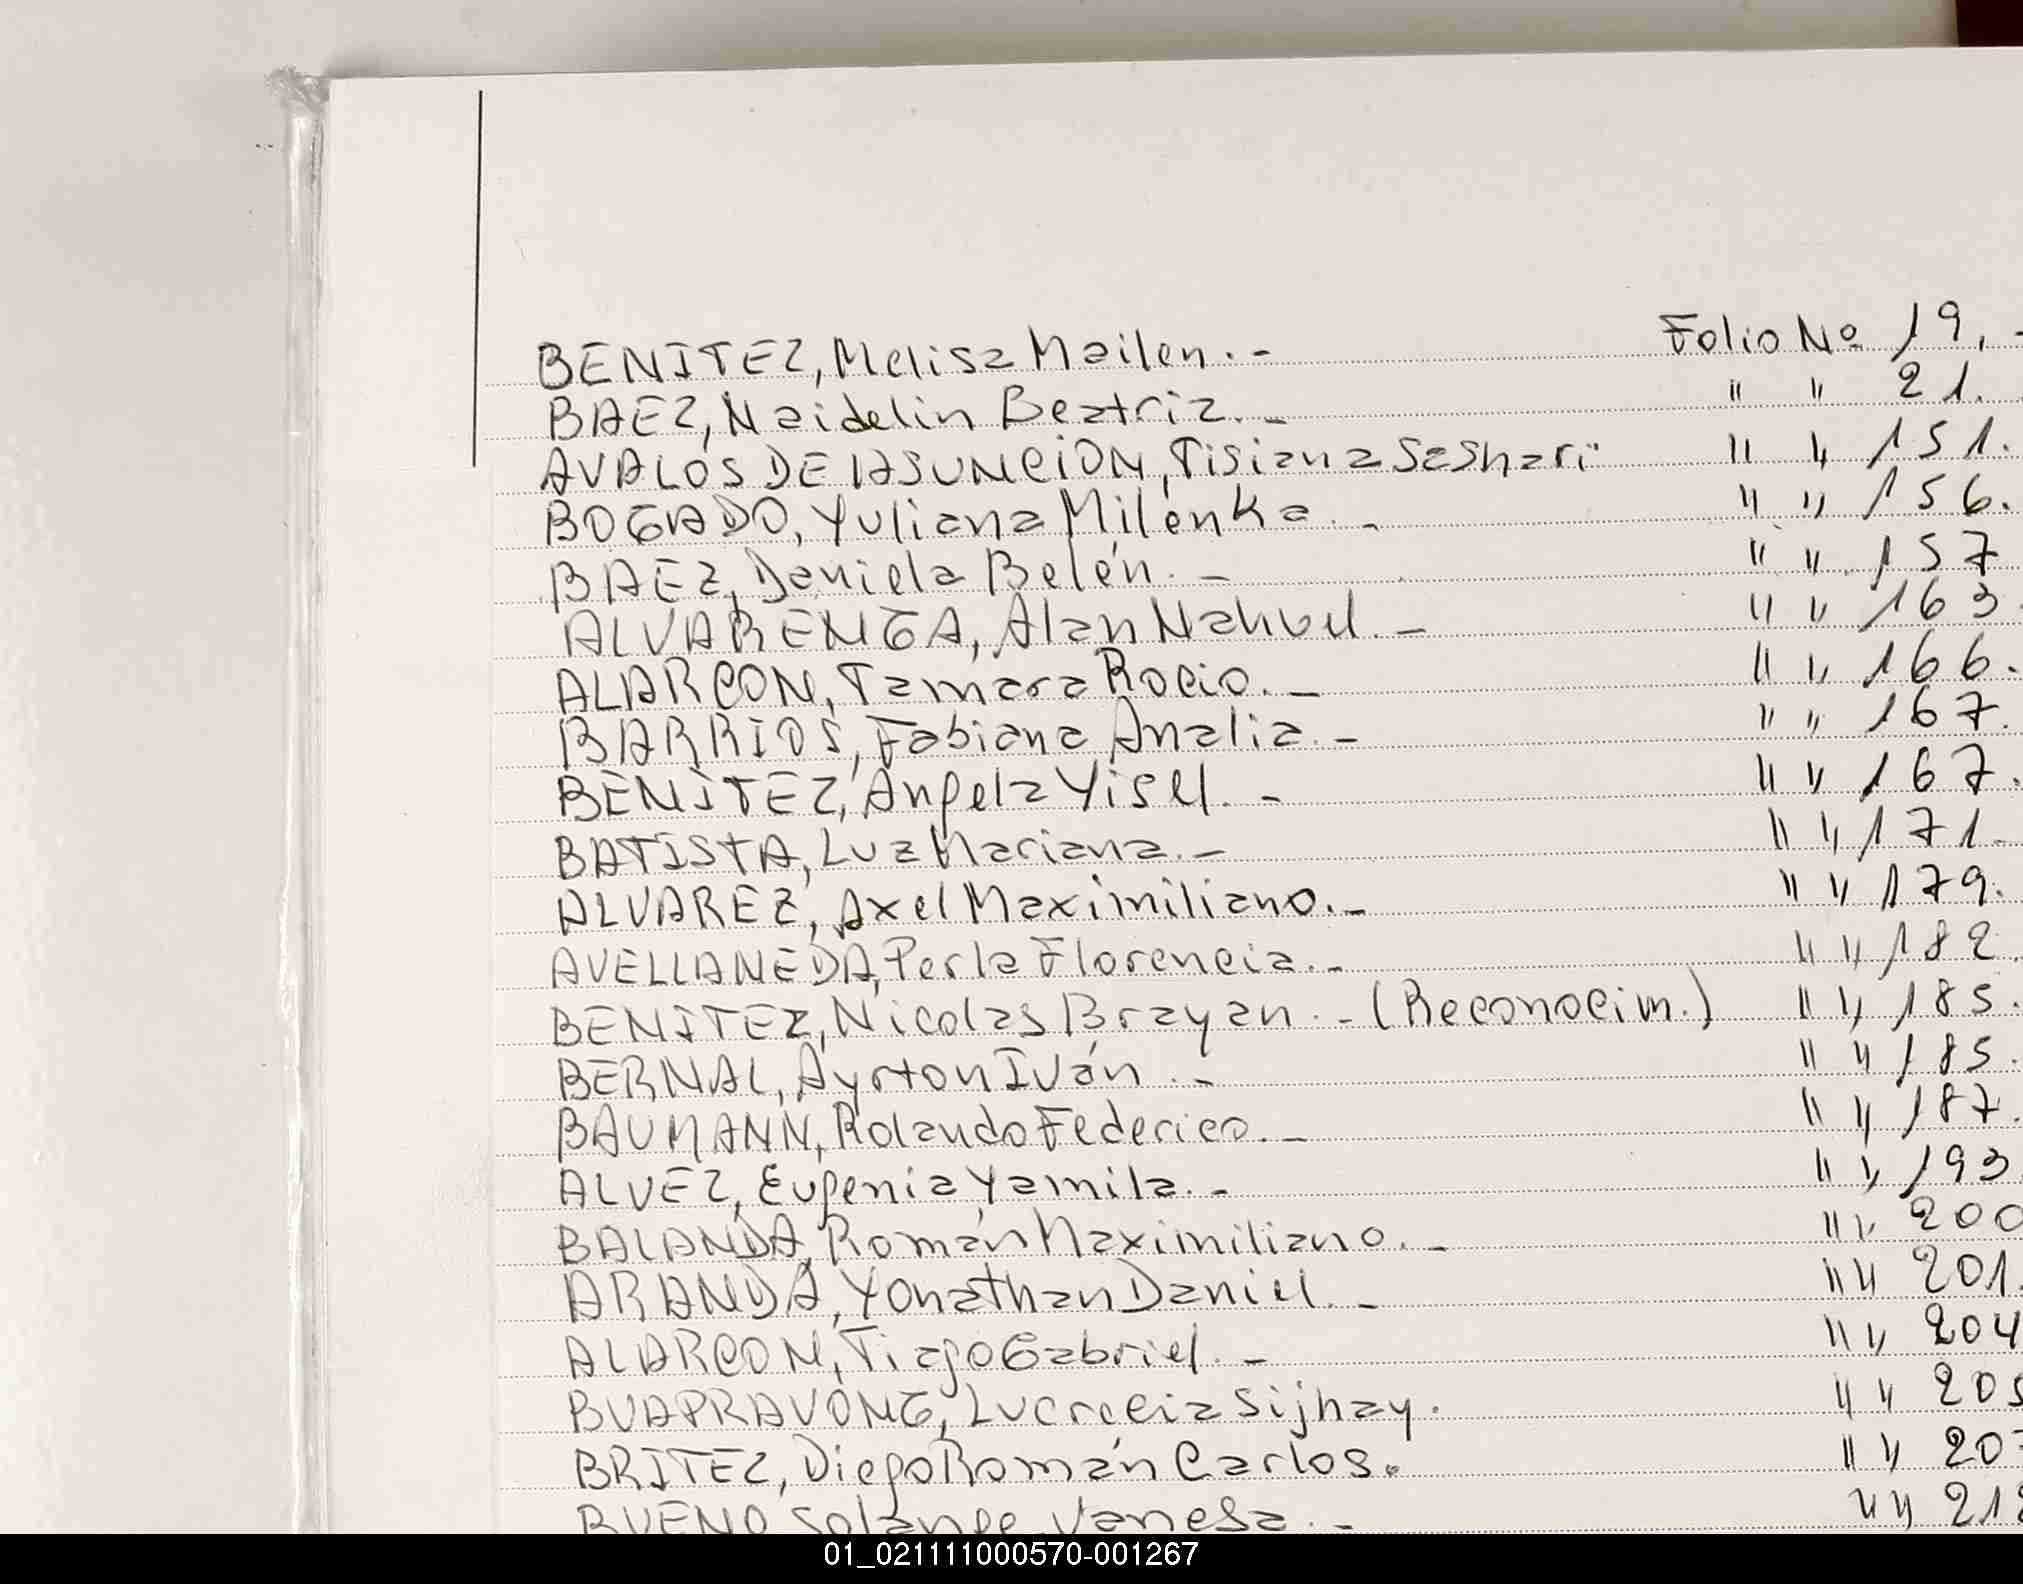 BENITEZ, Melisa Mailen.- Folio Nº 19.-
BAEZ, Naidelin Beatriz.- " " 21.
AVALOS DE LASUNCION, Tisiana Sashari " " 151.
BOGADO, Yuliana Milenka.- " " 156.
BAEZ, Daniela Belén.- " " 157
ALVARENGA, Alan Nahuel.- " " 163.
ALARCON, Tamara Rocio.- " " 166.
BARRIOS, Fabiana Analia.- " " 167.
BENITEZ, Angela Yisel.- " " 167.
BATISTA, Luz Mariana.- " " 171.
ALVAREZ, Axel Maximiliano.- " " 179.
AVELLANEDA, Perla Florencia.- " " 182.
BENITEZ, Nicolas Brayan.- (Reconocim.) " " 185.
BERNAL, Ayrton Iván.- " " 185.
BAUMANN, Rolando Federico.- " " 187.
ALVEZ, Eugenia Yamila.- " " 193
BALANDA, Román Maximiliano.- " " 200
ARANDA, Yonathan Daniel.- " " 201.
ALARCON, Tiago Gabriel.- " " 204
BUAPRAVONG, Lucrecia Sijhay. " " 205
BRITEZ, Diego Román Carlos. " " 207
BUENO Solange Vanesa.- " " 218
01_021111000570-001267